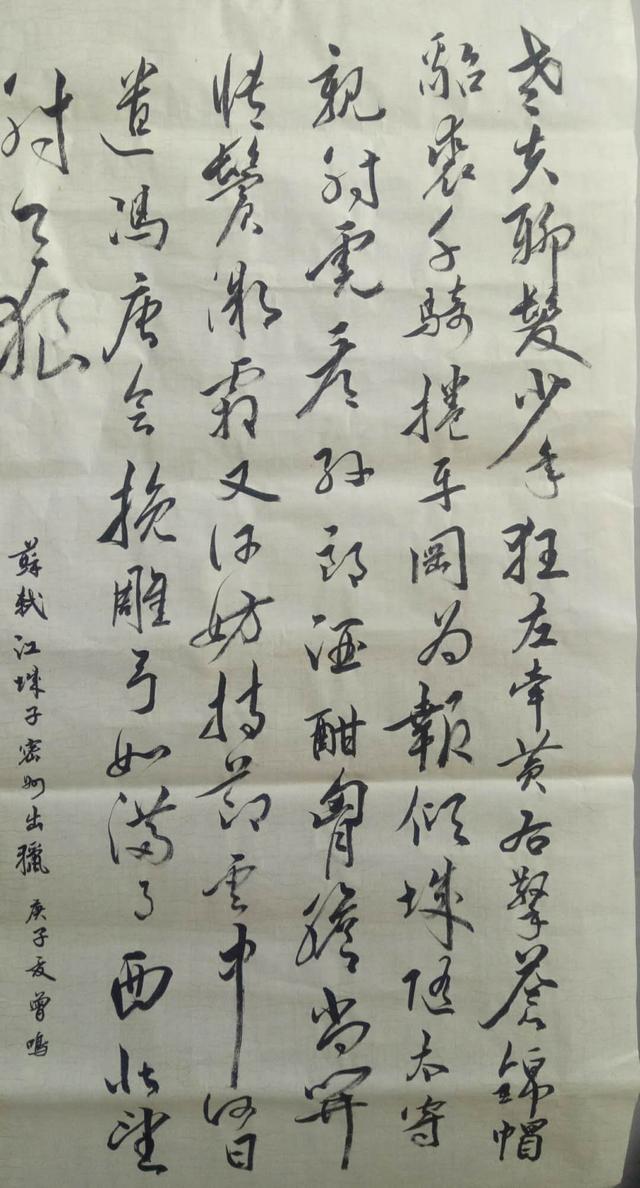 老夫聊髮少年狂左牽黃右擎蒼錦帽
貂裘千騎捲平岡為報傾城隨太守
親射虎看孫郎酒酣胷膽尚開
張鬢微霜又何妨持節雲中何日
遣馮唐會挽雕弓如滿月西北望
射天狼
蘇軾江城子密州出獵 庚子夏曾鳴